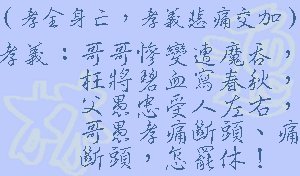 (孝全身亡，孝義悲痛交加)
孝義：哥哥慘變遭魔吞，
枉將碧血寫春秋，
父愚忠受人左右，
哥愚孝痛斷頭、痛
斷頭，怎罷休！